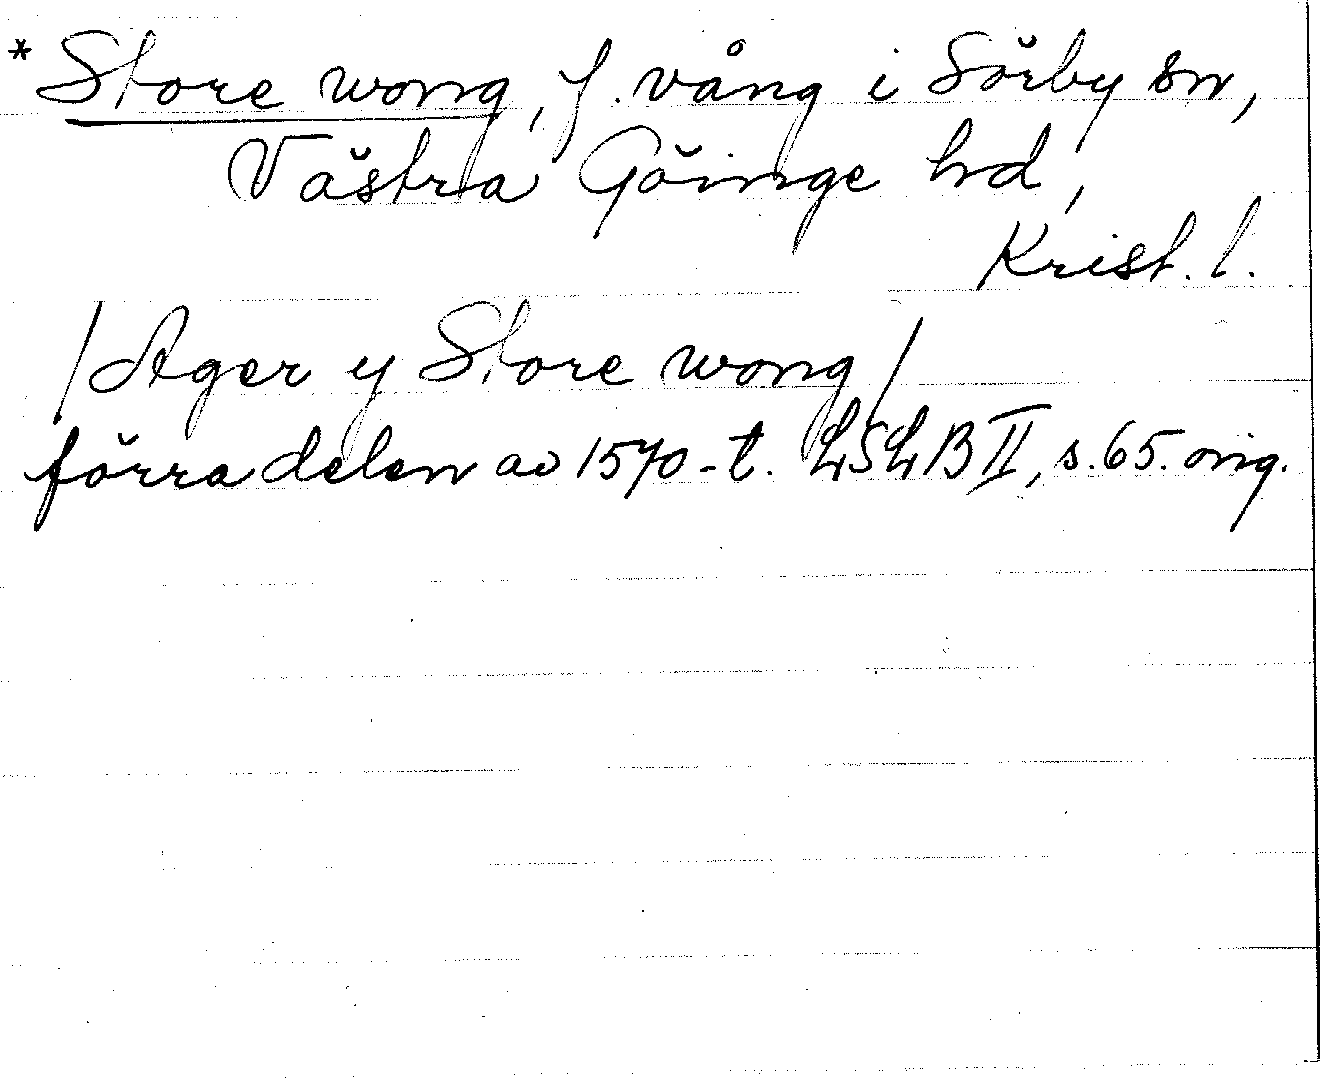 * Store wong, f. vång i Sörby sn,
Västra Göinge hd,
Krist. l.
/Ager y Store wong/
förra delen av 1570-t. LSLB II, s. 65. orig.